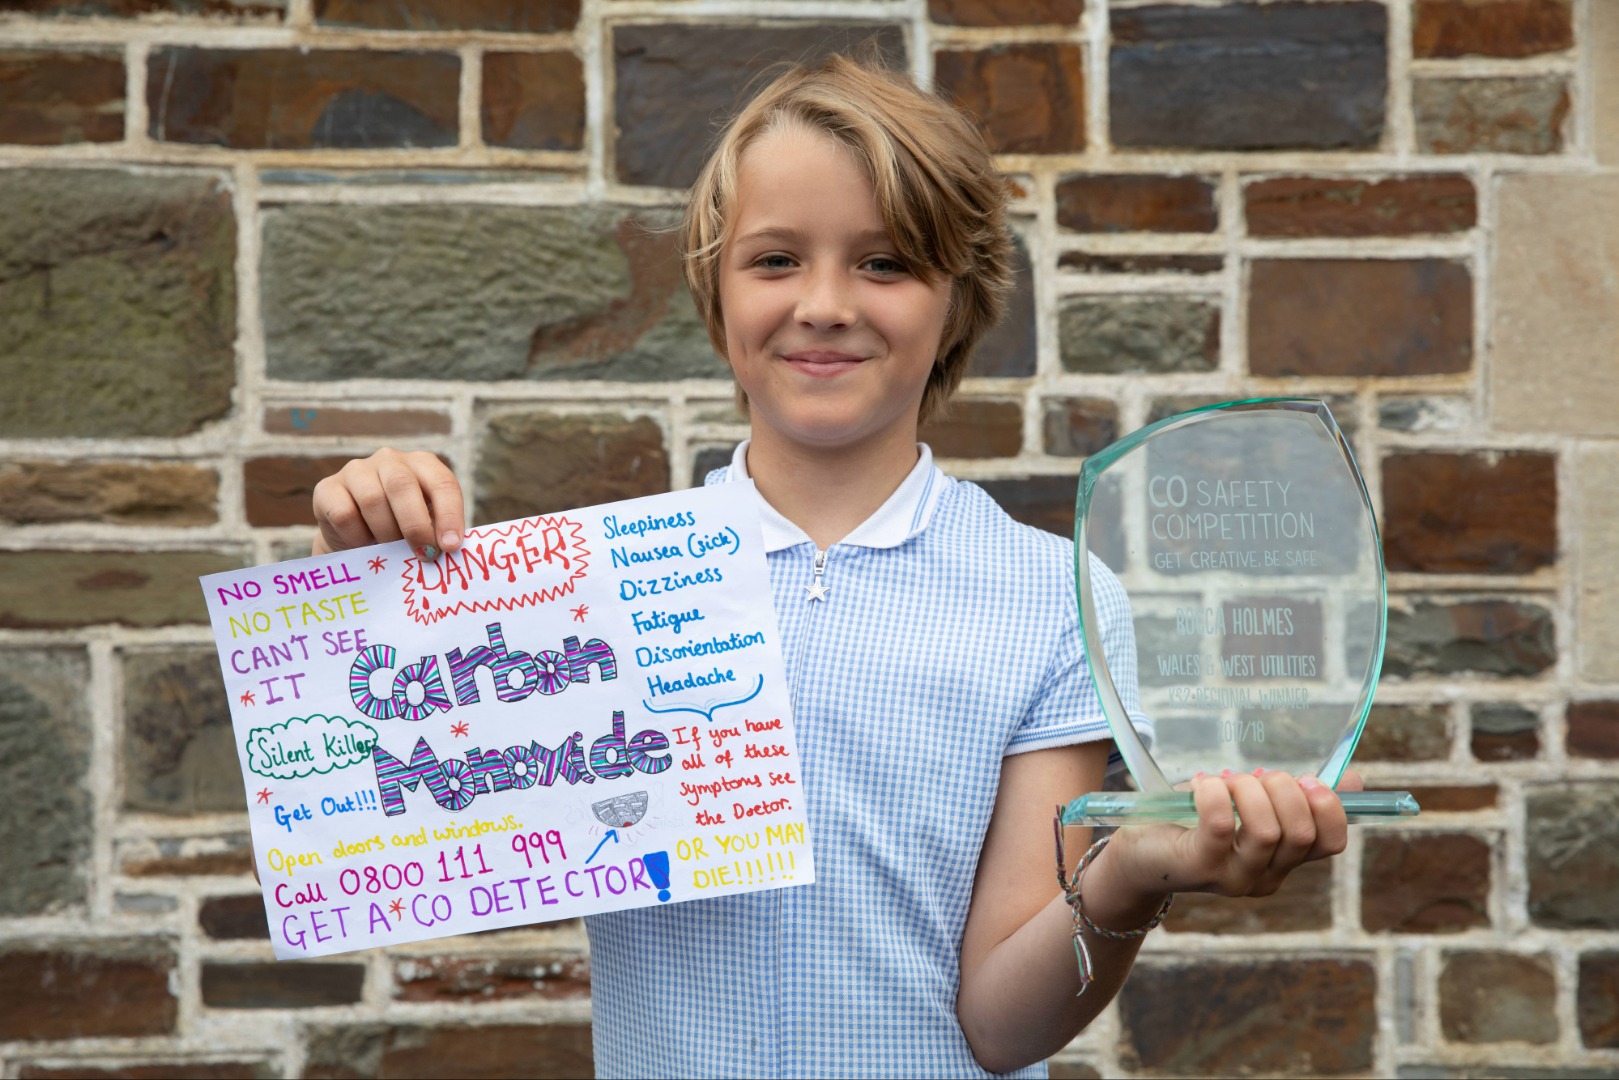 NO SMELL
NO TASTE
CAN'T SEE
IT
DANGER
Carbon
Monoxide
Silent Killer
Get Out!!!
Open doors and windows.
Call 0800 111 999
GET A CO DETECTOR!
Sleepiness
Nausea (sick)
Dizziness
Fatigue
Disorientation
Headache
If you have
all of these
symptoms see
the Doctor.
OR YOU MAY
DIE!!!!!!
CO SAFETY
COMPETITION
GET CREATIVE, BE SAFE
HOLMES
WALES & WEST UTILITIES
KS2 REGIONAL WINNER
2017/18